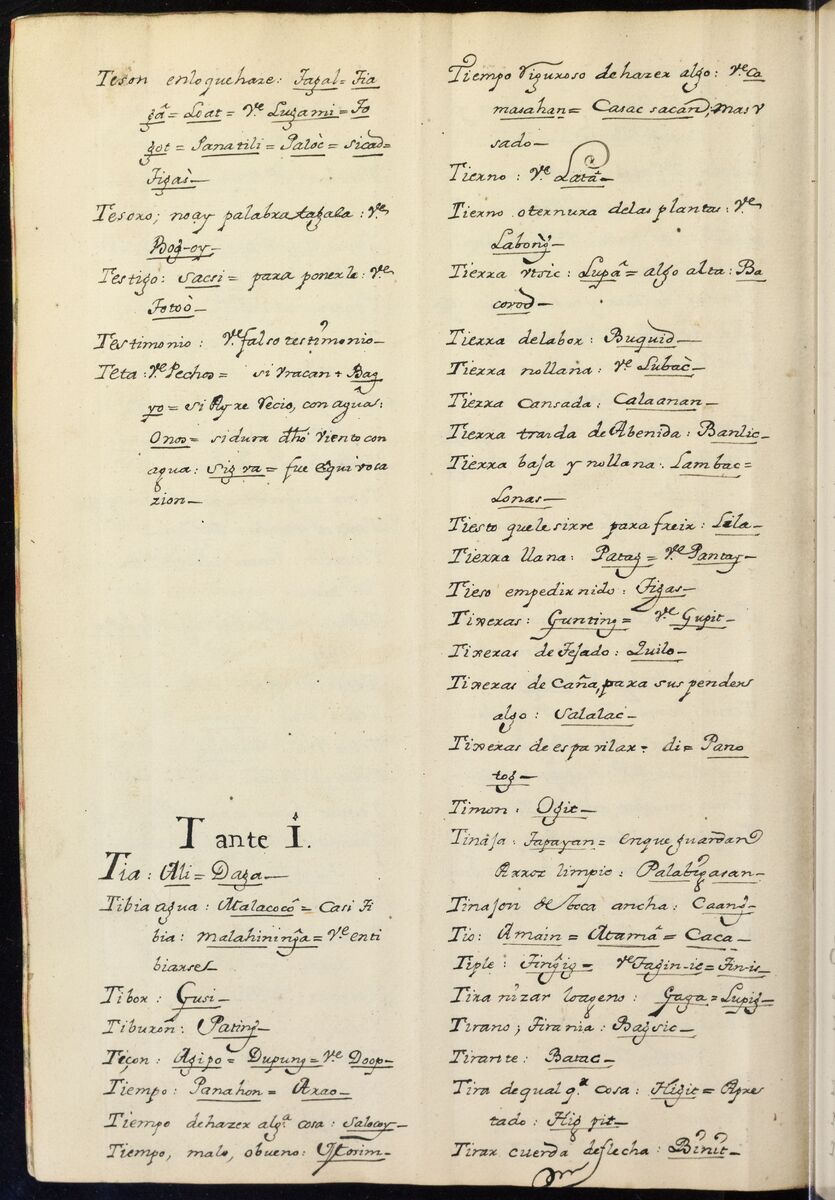 Teson enloquehaze: Tagal= Tia
gã= Loat= Vᵉ Lugami= To
got= Panatili= Palòc= sicad=
Tigàs—
Tesoro; no ay palabra tagala: Vᵉ
Bog-oy—
Testigo: Sacsi= para ponerle: Vᵉ
Totoò—
Testimonio: Vᵉ falso testimonio—
Teta: Vᵉ Pechos= si Vracan + Bag
yo= si Ayre Vecio, con agua:
Onos= si dura dhò viento con
agua: Sigva= fue Equivoca
zion—
T ante I.
Tia: Ali= Daga—
Tibia agua: Malacocô= Casi ti
bia: malahininga= Vᵉ enti
biarse—
Tibor: Gusi—
Tiburon: Pating—
Tiçon: Agipo= Dupung= Vᵉ Doop—
Tiempo: Panahon= Arao—
Tiempo dehazer algᵃ cosa: Salocoy—
Tiempo, malo, obueno: Vtorim—
Tiempo Viguroso dehazer algo: Vᵉ Ca
masahan= Casac sacan, mas V
sado—
Tierno: Vᵉ Latâ—
Tierno oternura delas plantas: Vᵉ
Labong—
Tierra vtsic: Lupâ= algo alta: Ba
corod—
Tierra delabor: Buquid—
Tierra nollana: Vᵉ Lubàc—
Tierra Cansada: Calaanan—
Tierra traida de Abenida: Banlic—
Tierra baja y nollana: Lambac=
Lonas—
Tiesto quele sirve para freir: Lila—
Tierra llana: Patag= Vᵉ Pantag—
Tieso empedirnido: Tigas—
Tixeras: Gunting= Vᵉ Gupit—
Tixeras de Tejado: Quilo—
Tixeras de Caña, para suspender
algo: Salalac—
Tixeras de espavilar= di= Pano
tog—
Timon: Ogit—
Tinaja: Tapayan= enque guardan
Arroz limpio: Palabigasan—
Tinajon de boca ancha: Caang—
Tio: Amain= Atamâ= Caca—
Tiple: Tingig= Vᵉ Tagin-ic= Tin-is—
Tiranizar loageno: Gaga= Lupig—
Tirano; Tirania: Bagsic—
Tirante: Batac—
Tira dequalqᵃ cosa: Higit= Apre
tado: Hig pit—
Tirar cuerda deflecha: Binit—